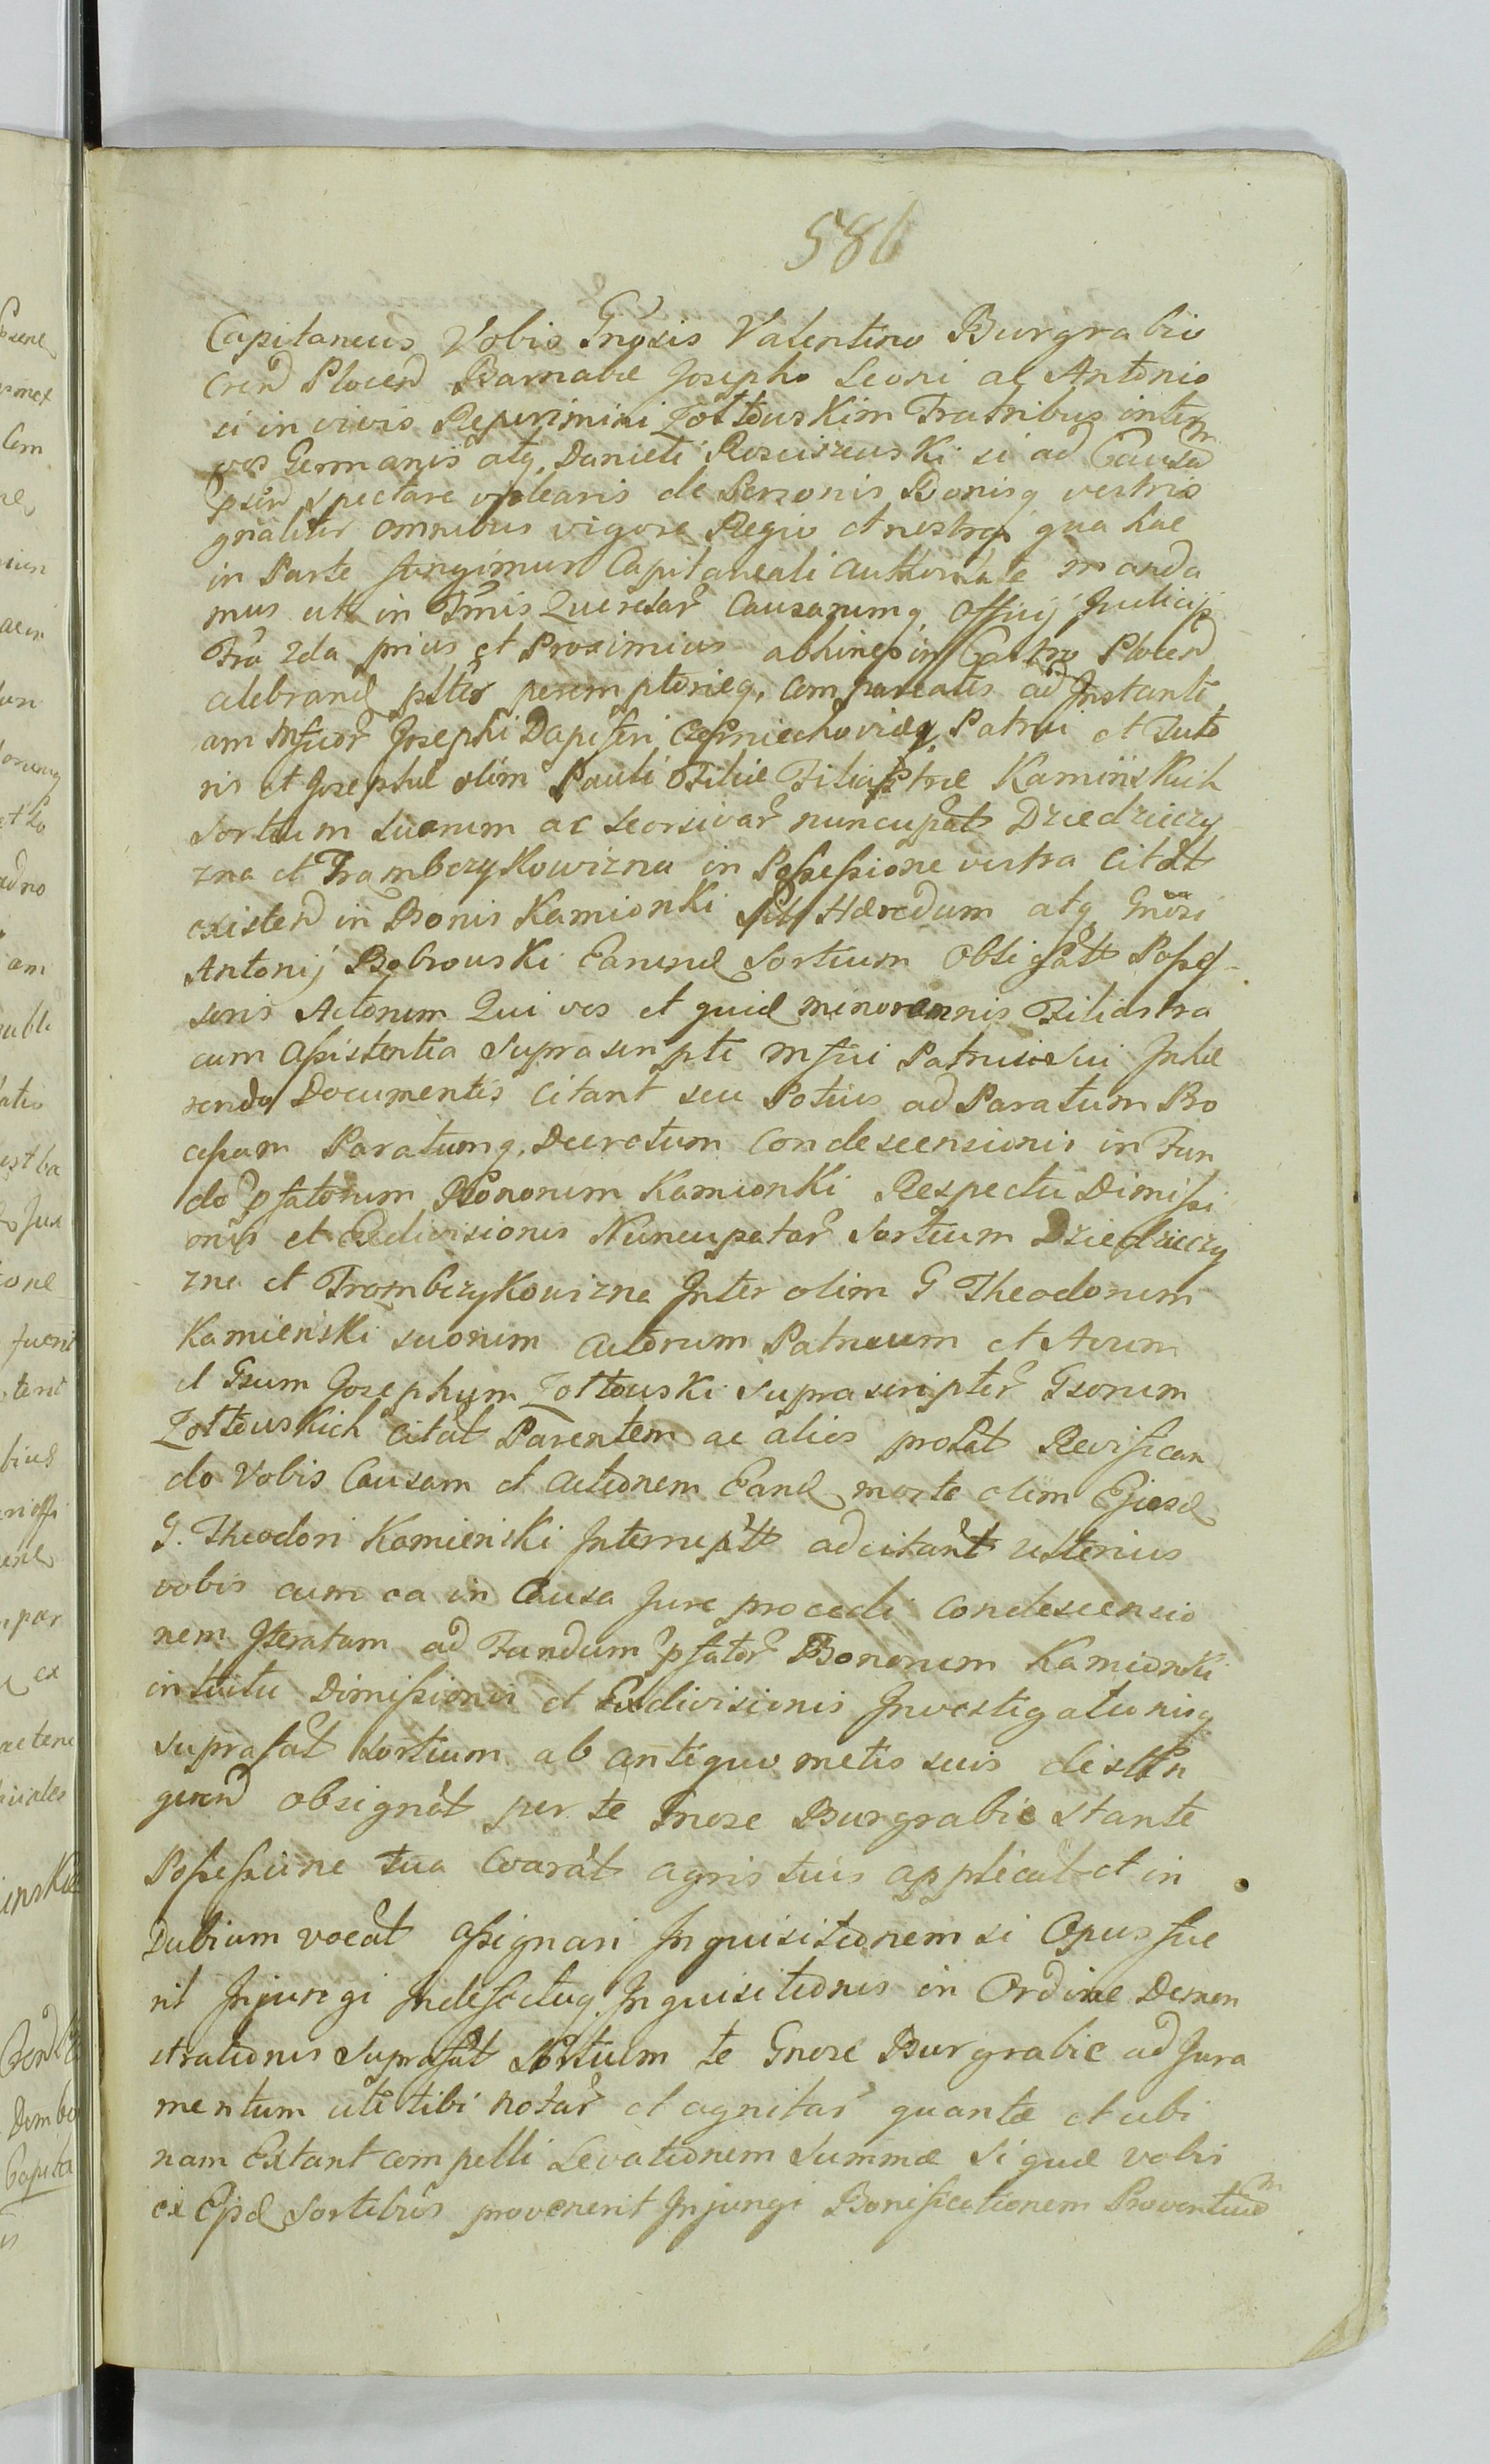 586
Capitaneus Vobis Gnosis Valentino Burgrabio
Cren Plocen Barnabæ Josepho Leoni ac Antonio
si in vivis Reperimini Żołtowskim Fratribus inter
vos Germanis atq, Danieli Rosciszewski si ad Causam
psen spectare videaris de Personis Bonisq vestris
gnaliter omnibus vigore Regio et nostra qua hac
in Parte fungimur Capitaneali Authoritate manda
mus uti in Tmis Querelar Causarumq, Officij Judicij
Fra 2da prius et Proximius abhinc in Castro Plocen
celebrand ptter peremptorieq, compareatis ad Instanti
am Mfcor Josephi Dapiferi Czerniechovien Patrui et Tuto
ris et Josephæ olim Pauli Filiæ Filiastræ Kamiiskich
Sortium suarum ac seorsivar nuncupat Dziedziczy
zna et Frambczykowizna in Possessione vestra citat
existen in Bonis Kamionki Hæredum atq Gnosi
Antonij Bobrowski Earund Sortium Obligatt Posses-
soris Actorum Qui vos et quid minorennis Filiastra
cum Assistentia suprascripti Mfci Patrui Sui Inhæ
rendo Documentis citant seu Potius ad Paratum Pro
cessum Paratumq, Decretum Condescensionis in Fun
do psatorum Bonorum Kamionki Respectu Dimissi
onis et Exdivisionis Nuncupatar Sortium Dziedziczy
zna et Frambczykowizna Inter olim G Theodorum
Kamienski suorum actorum Patruum et Avum
et Gsum Josephum Żołtowski suprascripter Gsorum
Żołtowskich citat Parentem ac alios protat Revifican
do Vobis Causam et actionem Eand morte olim Ejusd
G. Theodori Kamienski Interrupt adcitant ulterius
vobis cum ea in Causa Jure procedi Condescensio
nem Iteratam ad Fundum psator Bonorum Kamionki
intuitu Dimissionis et Exdivisionis Investigationisq
suprafat sortium ab antiquo metis suis distin
guen obsignat per te Gnose Burgrabie stante
Possessione tua Coarat agris tuis applicat et in
Dubium vocat assignari Inquisitionem si Opus fue
rit Injungi Indefectuq Inquisitionis in Ordine Demon
strationis suprafat Sortium te Gnose Burgrabie ad Jura
mentum uti tibi notar et agnitar quantæ et ubi
nam Extant compelli Levationem Summæ si quæ vobis
ex Ejsd Sortibus provenerit Injungi Bonificationem Proventuum